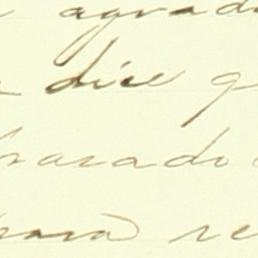 agrad
dice q
brazado
para re